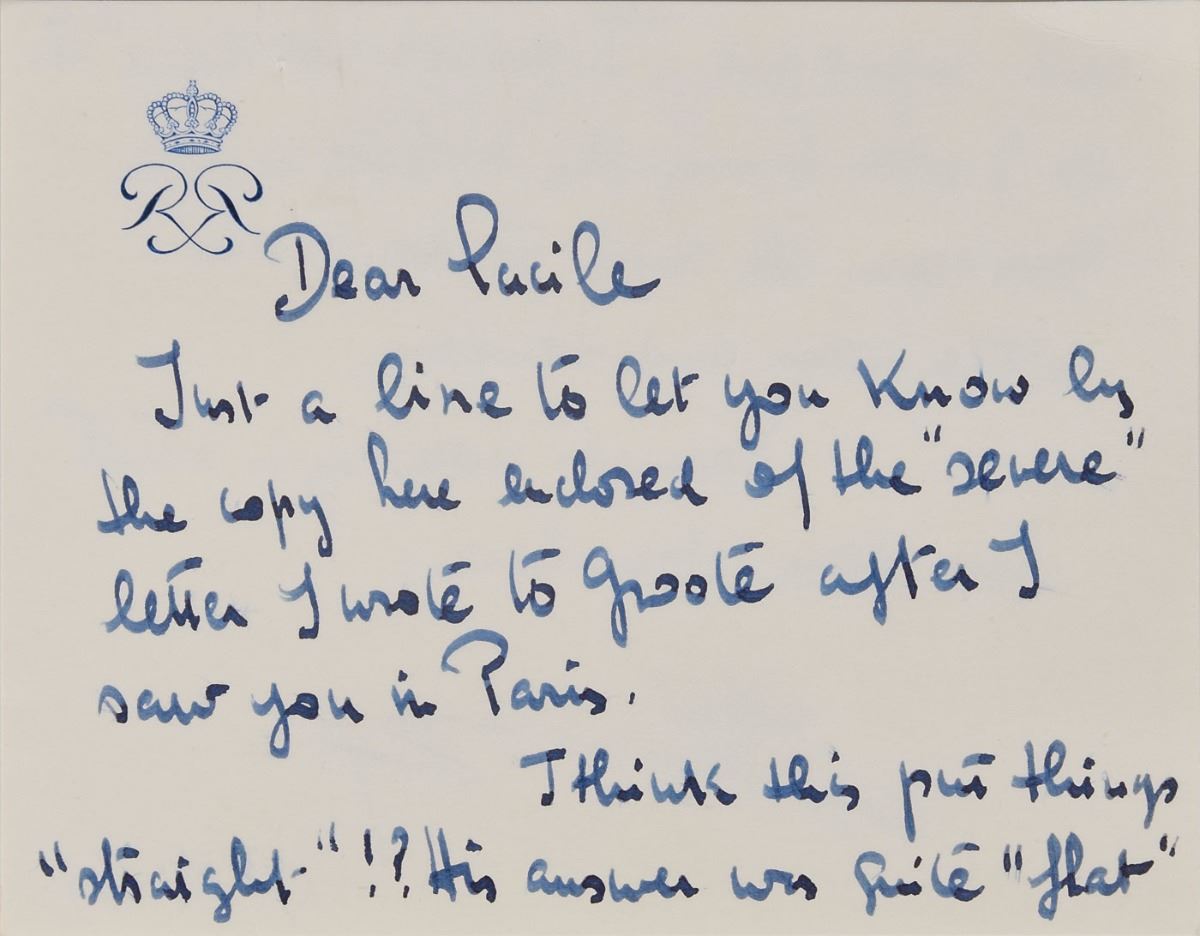 RR
Dear Lucile
Just a line to let you know by
the copy here enclosed of the "severe"
letter I wrote to Groote after I
saw you in Paris.
I think this put things
"straight"!? His answer was quite "flat"